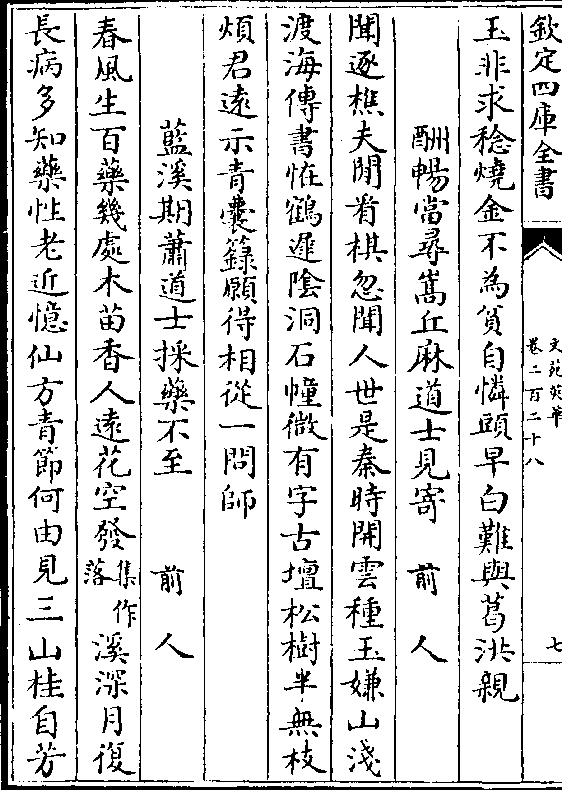 欽定四庫全書
文苑英華
卷二百二十八
七
玉非求稔燒金不為貧自憐頭早白難與葛洪親
酬暢當尋嵩丘麻道士見寄 前人
聞逐樵夫閒看棋忽聞人世是秦時開雲種玉嫌山淺
渡海傳書恠鶴遲陰洞石幢微有字古壇松樹半無枝
煩君遠示青囊籙願得相從一問師
藍溪期蕭道士採藥不至 前人
春風生百藥幾處木苗香人遠花空發集作落溪深月復
長病多知藥性老近憶仙方青節何由見三山桂自芳